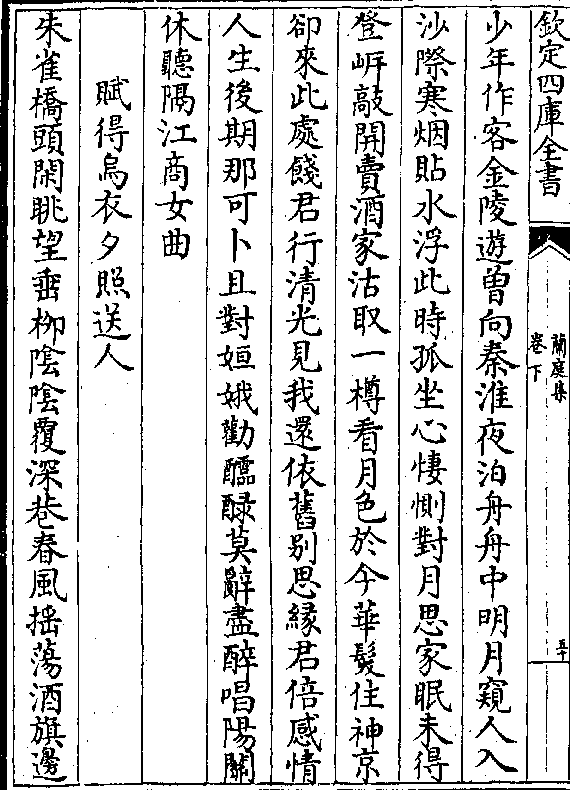 欽定四庫全書
蘭庭集
卷下
五十
少年作客金陵遊曾向秦淮夜泊舟舟中明月窺人入
沙際寒烟貼水浮此時孤坐心悽惻對月思家眠未得
登岍敲開賣酒家沽取一樽看月色於今華髮住神京
卻來此處餞君行清光見我還依舊别思緣君倍感情
人生後期那可卜且對姮娥勸醽醁莫辭盡醉唱陽關
休聽隔江商女曲
賦得烏衣夕照送人
朱雀橋頭閑眺望垂栁陰陰覆深巷春風揺蕩酒旗邊